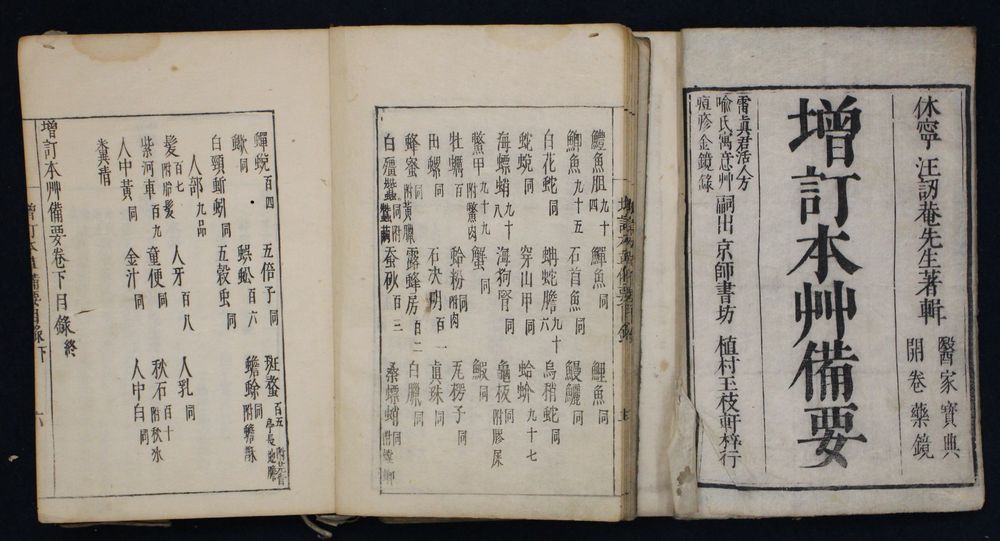 休寧 汪訒菴先生著輯 醫家寶典 開卷藥鏡
增訂本艸備要
雷真君活人方
喻氏寓意艸 嗣出 京師書坊 植村玉枝軒梓行
痘疹金鏡錄
鱧魚胆九十四 鱓魚同 鯉魚同
鯽魚九十五 石首魚同 鰻鱺同
白花蛇同 蚺蛇膽九十六 烏稍蛇同
蛇蛻同 穿山甲同 蛤蚧九十七
海螵蛸九十八 海狗腎同 龜板同附膠尿
鱉甲九十九附鱉肉 蟹同 鰕同
牡蠣百 蛤粉同附肉 瓦楞子同
田螺同 石决明百一 真珠同
蜂蜜同附黃臘 露蜂房百二 白臘同
白殭蠶同附蠶繭 蚕砂百三 桑螵蛸同
蟬蛻百四 五倍子同 斑蝥百五
蠍同 蜈蚣百六 蟾蜍同附蟾酥
白頸蚯蚓同 五穀虫同
人部九品
髮百七附胎髮 人牙百八 人乳同
紫河車百九 童便同 秋石百十附秋冰
人中黄同 金汁同 人中白同
糞清
增訂本艸備要卷下目錄終